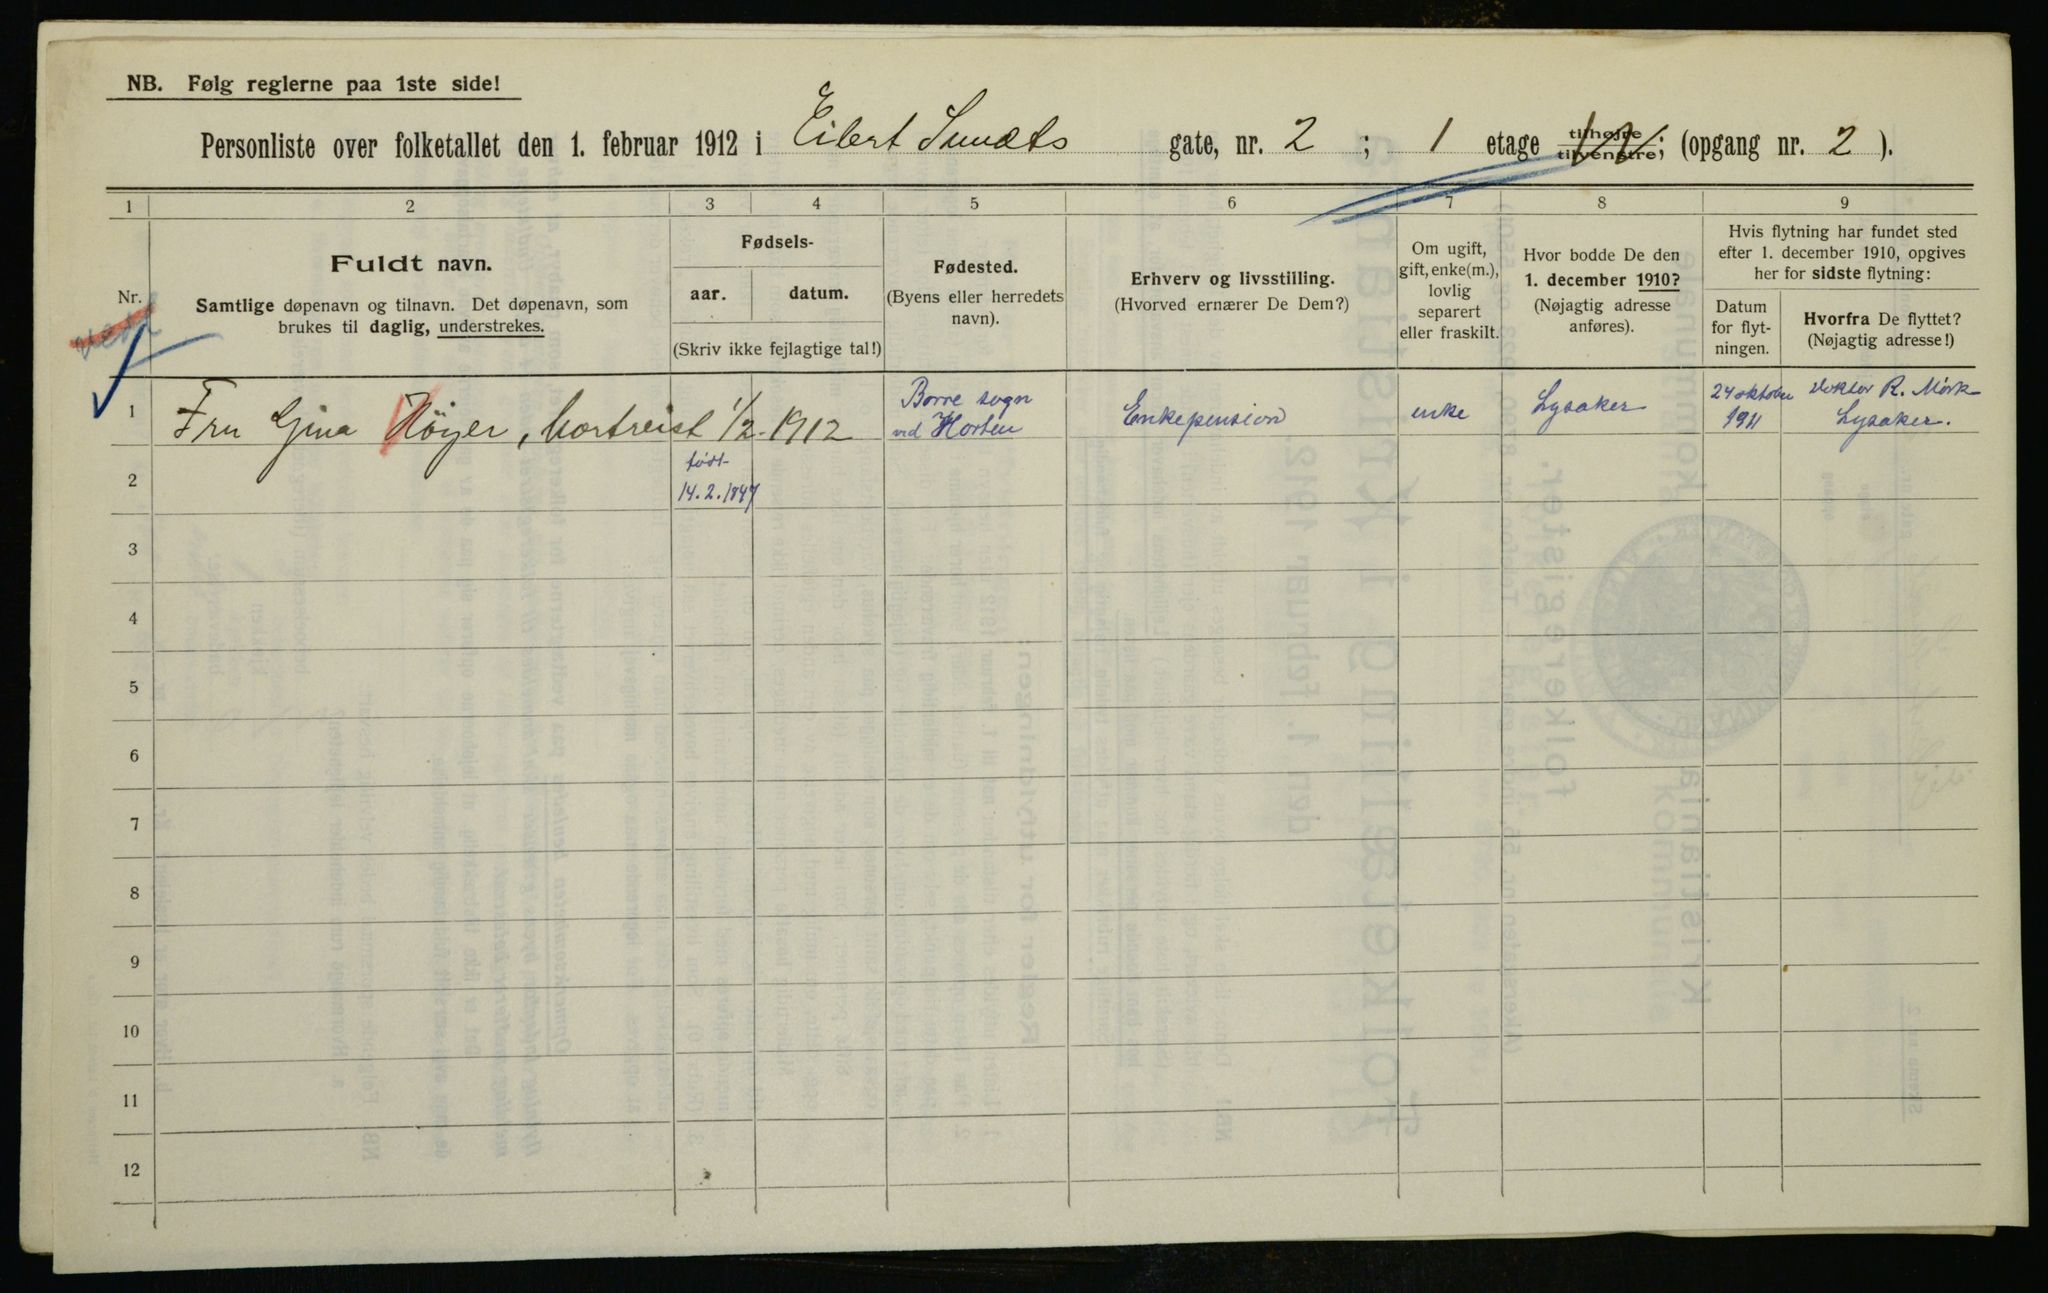 NB. Følg reglerne paa 1ste side!
Personliste over folketallet den 1. februar 1912 i Eilert Sundts gate, nr. 2 ; 1 etage tilhøjre tilvenstre; (opgang nr. 2 ).
1 2 3 4 5 6 7 8 9
Nr.
Fuldt navn.
Samtlige døpenavn og tilnavn. Det døpenavn, som
brukes til daglig, understrekes.
Fødsels-
aar. datum.
(Skriv ikke fejlagtige tal!)
Fødested.
(Byens eller herredets
navn).
Erhverv og livsstilling.
(Hvorved ernærer De Dem?)
Om ugift,
gift, enke(m.),
lovlig
separert
eller fraskilt.
Hvor bodde De den
1. december 1910?
(Nøjagtig adresse
anføres).
Hvis flytning har fundet sted
efter 1. december 1910, opgives
her for sidste flytning:
Datum
for flyt-
ningen.
Hvorfra De flyttet?
(Nøjagtig adresse!)
1 Fru Gina Höyer, bortreist 1/2 - 1912
Borre sogn
ved Horten
Enkepension
enke
Lysaker
24 oktober
1911
Doktor R. Mörk
Lysaker.
2
født
14.2.1847
3
4
5
6
7
8
9
10
11
12